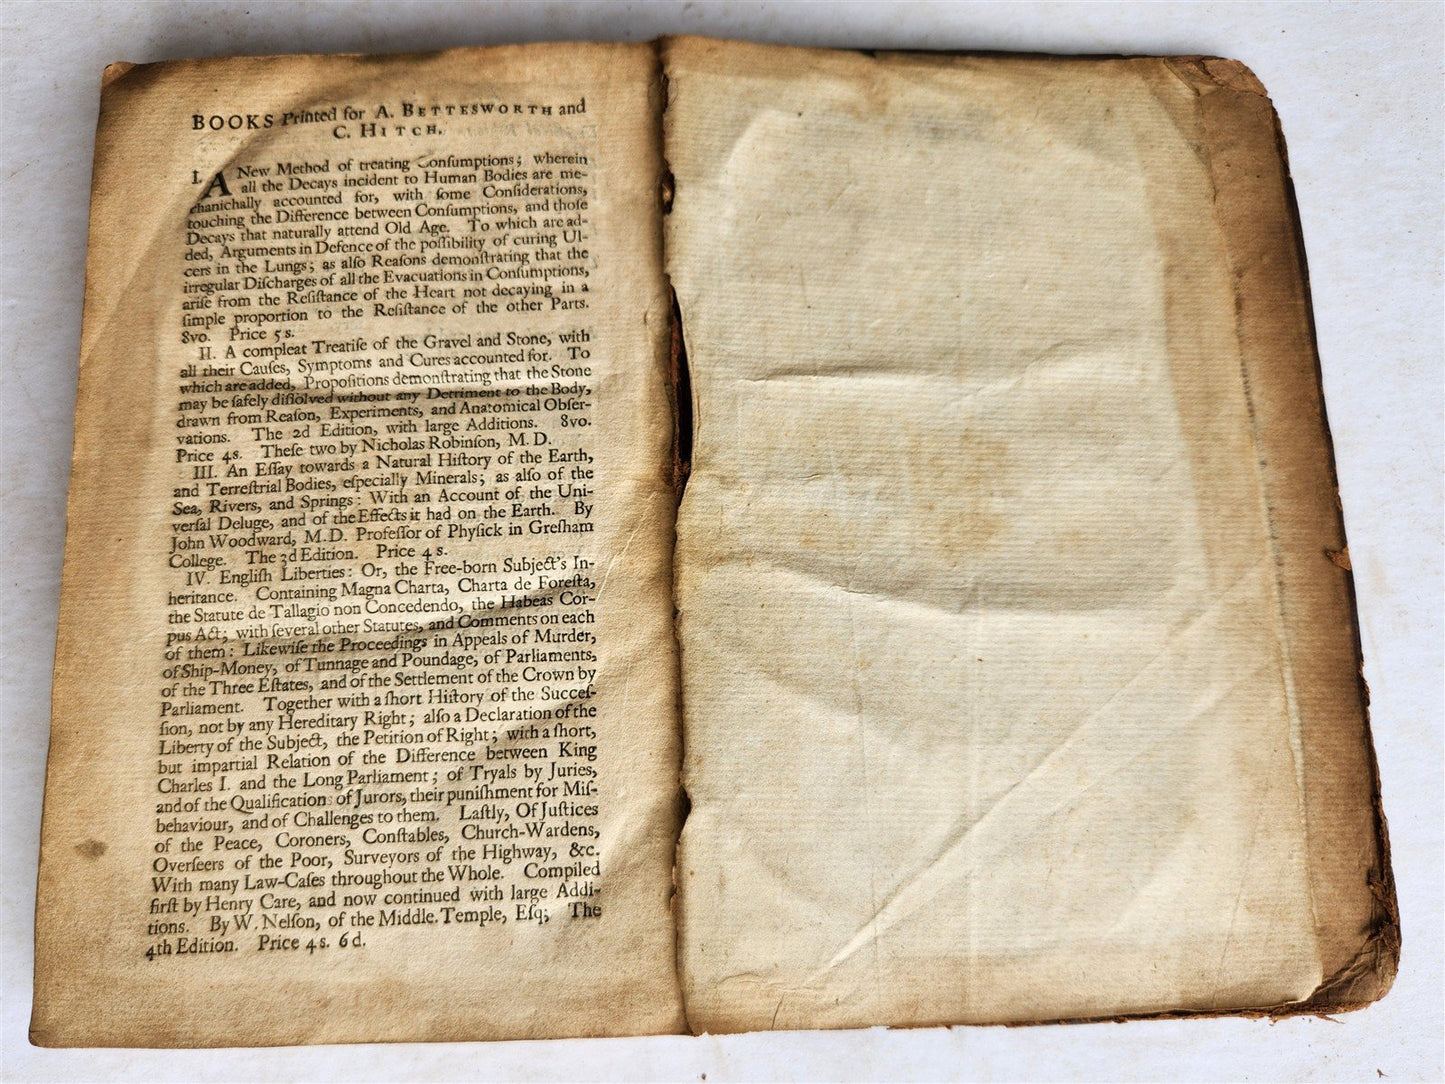 BOOKS Printed for A. BETTESWORTH and
C. HITCH.
I. A New Method of treating Conſumptions; wherein
all the Decays incident to Human Bodies are me-
chanichally accounted for, with ſome Conſiderations,
touching the Difference between Conſumptions, and thoſe
Decays that naturally attend Old Age. To which are ad-
ded, Arguments in Defence of the poſſibility of curing Ul-
cers in the Lungs; as alſo Reaſons demonſtrating that the
irregular Diſcharges of all the Evacuations in Conſumptions,
ariſe from the Reſiſtance of the Heart not decaying in a
ſimple proportion to the Reſiſtance of the other Parts.
8vo. Price 5 s.
II. A compleat Treatiſe of the Gravel and Stone, with
all their Cauſes, Symptoms and Cures accounted for. To
which are added, Propoſitions demonſtrating that the Stone
may be ſafely diſſolved without any Detriment to the Body,
drawn from Reaſon, Experiments, and Anatomical Obſer-
vations. The 2d Edition, with large Additions. 8vo.
Price 4s. Theſe two by Nicholas Robinſon, M. D.
III. An Eſſay towards a Natural Hiſtory of the Earth,
and Terreſtrial Bodies, eſpecially Minerals; as alſo of the
Sea, Rivers, and Springs: With an Account of the Uni-
verſal Deluge, and of the Effects it had on the Earth. By
John Woodward, M.D. Profeſſor of Phyſick in Greſham
College. The 3d Edition. Price 4 s.
IV. Engliſh Liberties: Or, the Free-born Subject's In-
heritance. Containing Magna Charta, Charta de Foreſta,
the Statute de Tallagio non Concedendo, the Habeas Cor-
pus Act; with ſeveral other Statutes, and Comments on each
of them: Likewiſe the Proceedings in Appeals of Murder,
of Ship-Money, of Tunnage and Poundage, of Parliaments,
of the Three Eſtates, and of the Settlement of the Crown by
Parliament. Together with a ſhort Hiſtory of the Succeſ-
ſion, not by any Hereditary Right; alſo a Declaration of the
Liberty of the Subject, the Petition of Right; with a ſhort,
but impartial Relation of the Difference between King
Charles I. and the Long Parliament; of Tryals by Juries,
and of the Qualifications of Jurors, their puniſhment for Miſ-
behaviour, and of Challenges to them. Laſtly, Of Juſtices
of the Peace, Coroners, Conſtables, Church-Wardens,
Overſeers of the Poor, Surveyors of the Highway, &c.
With many Law-Caſes throughout the Whole. Compiled
firſt by Henry Care, and now continued with large Addi-
tions. By W. Nelſon, of the Middle Temple, Eſq; The
4th Edition. Price 4s. 6d.